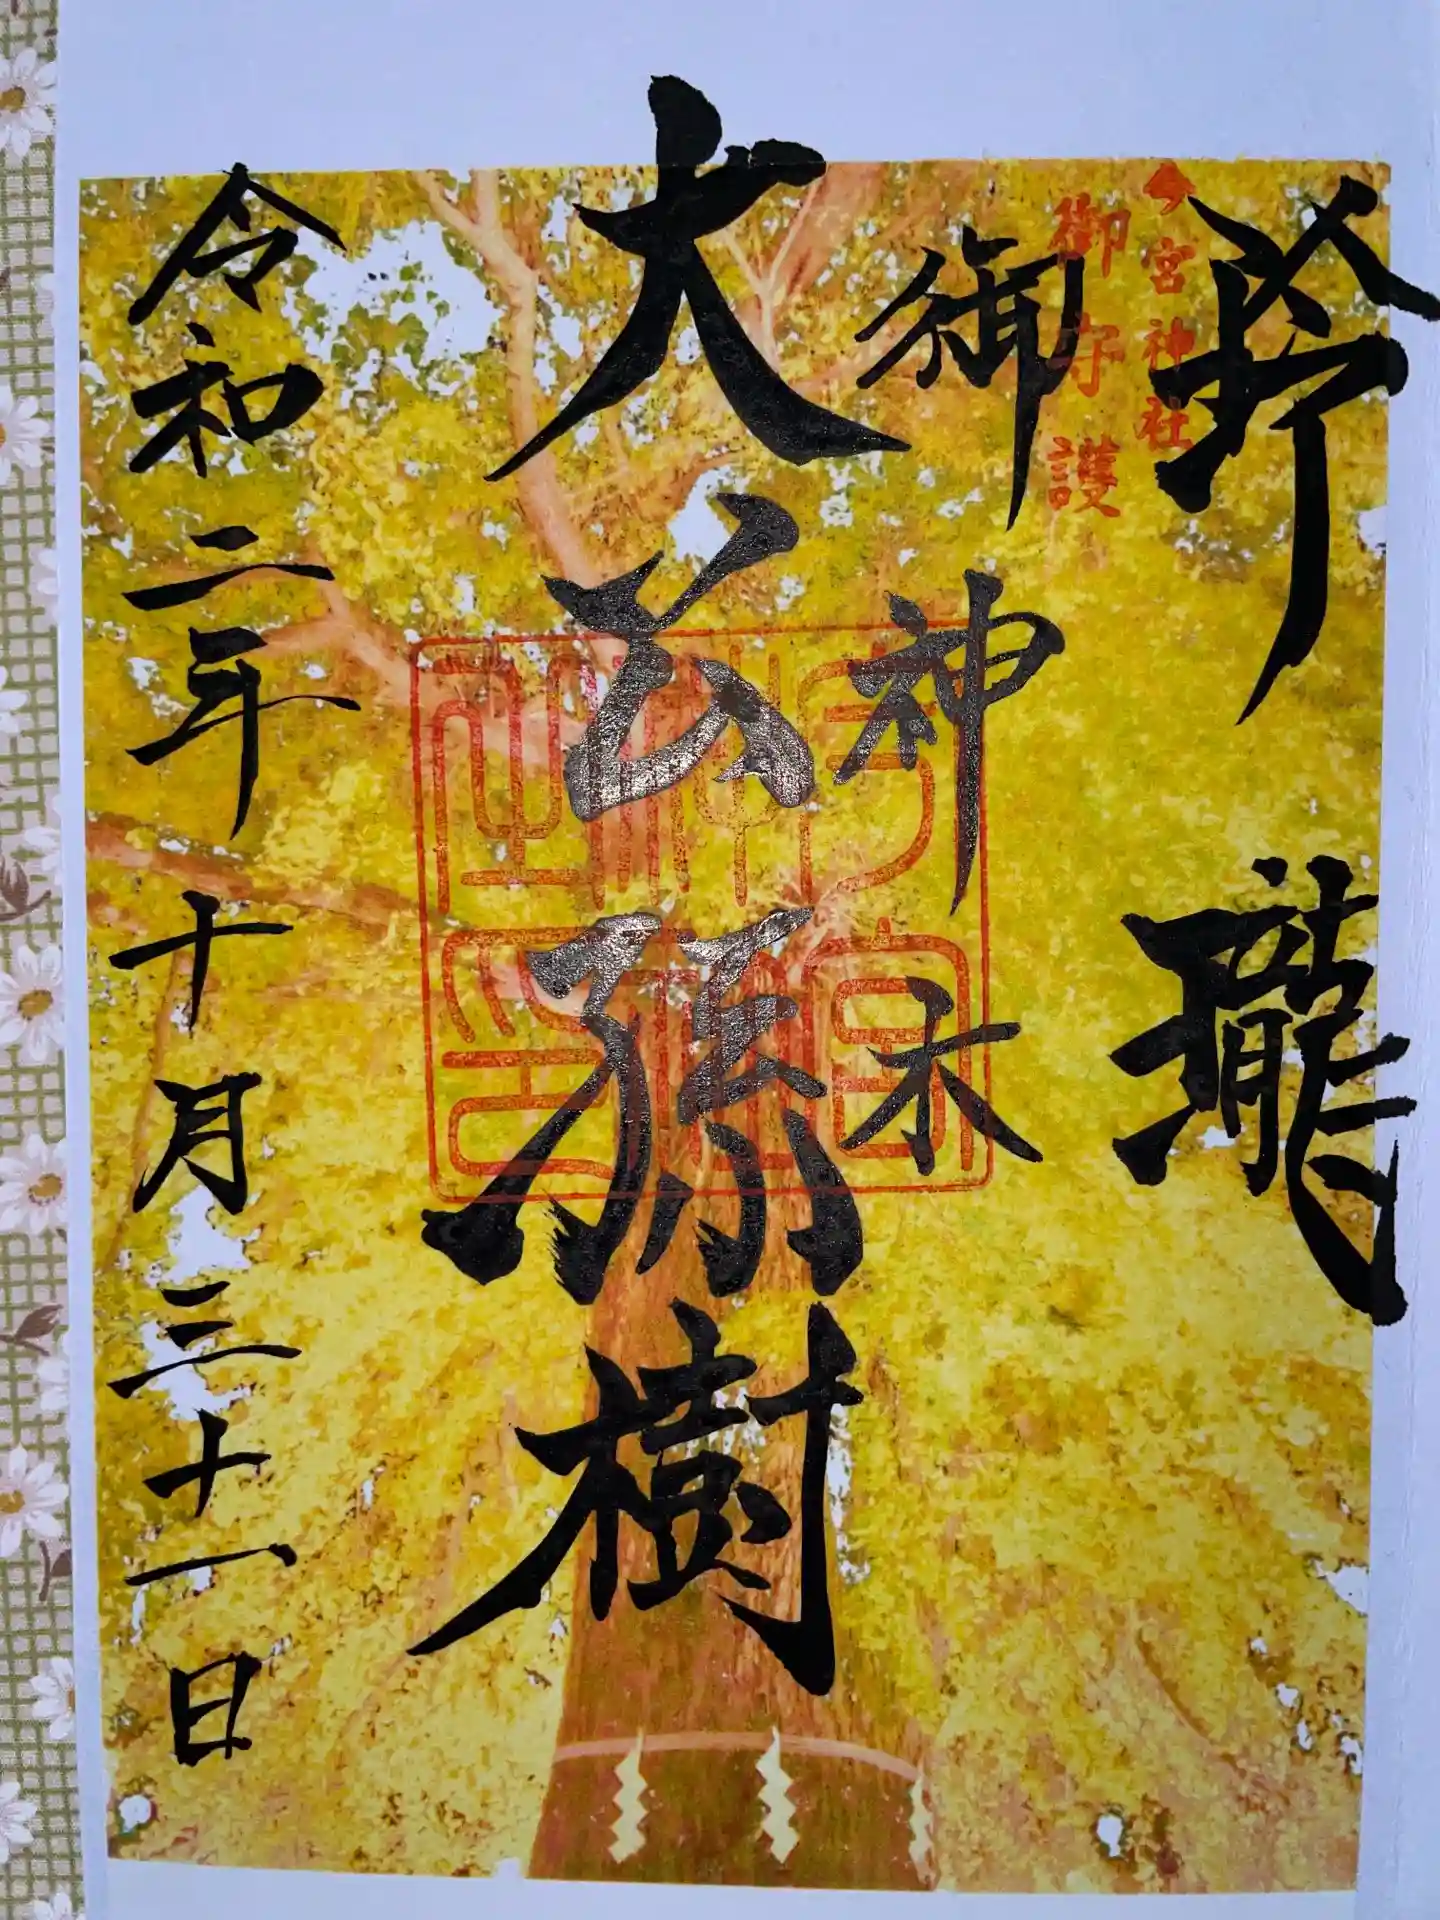 玲瓏
今宮神社
御守護
御神木
大公孫樹
令和二年十月三十一日